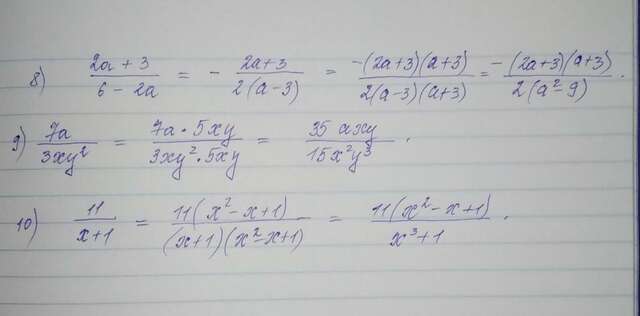 8) (2a + 3)/(6 - 2a) = - (2a+3)/(2(a-3)) = (-(2a+3)(a+3))/(2(a-3)(a+3)) = (-(2a+3)(a+3))/(2(a²-9)).
9) (7a)/(3xy²) = (7a·5xy)/(3xy²·5xy) = (35axy)/(15x²y³).
10) (11)/(x+1) = (11(x²-x+1))/((x+1)(x²-x+1)) = (11(x²-x+1))/(x³+1).